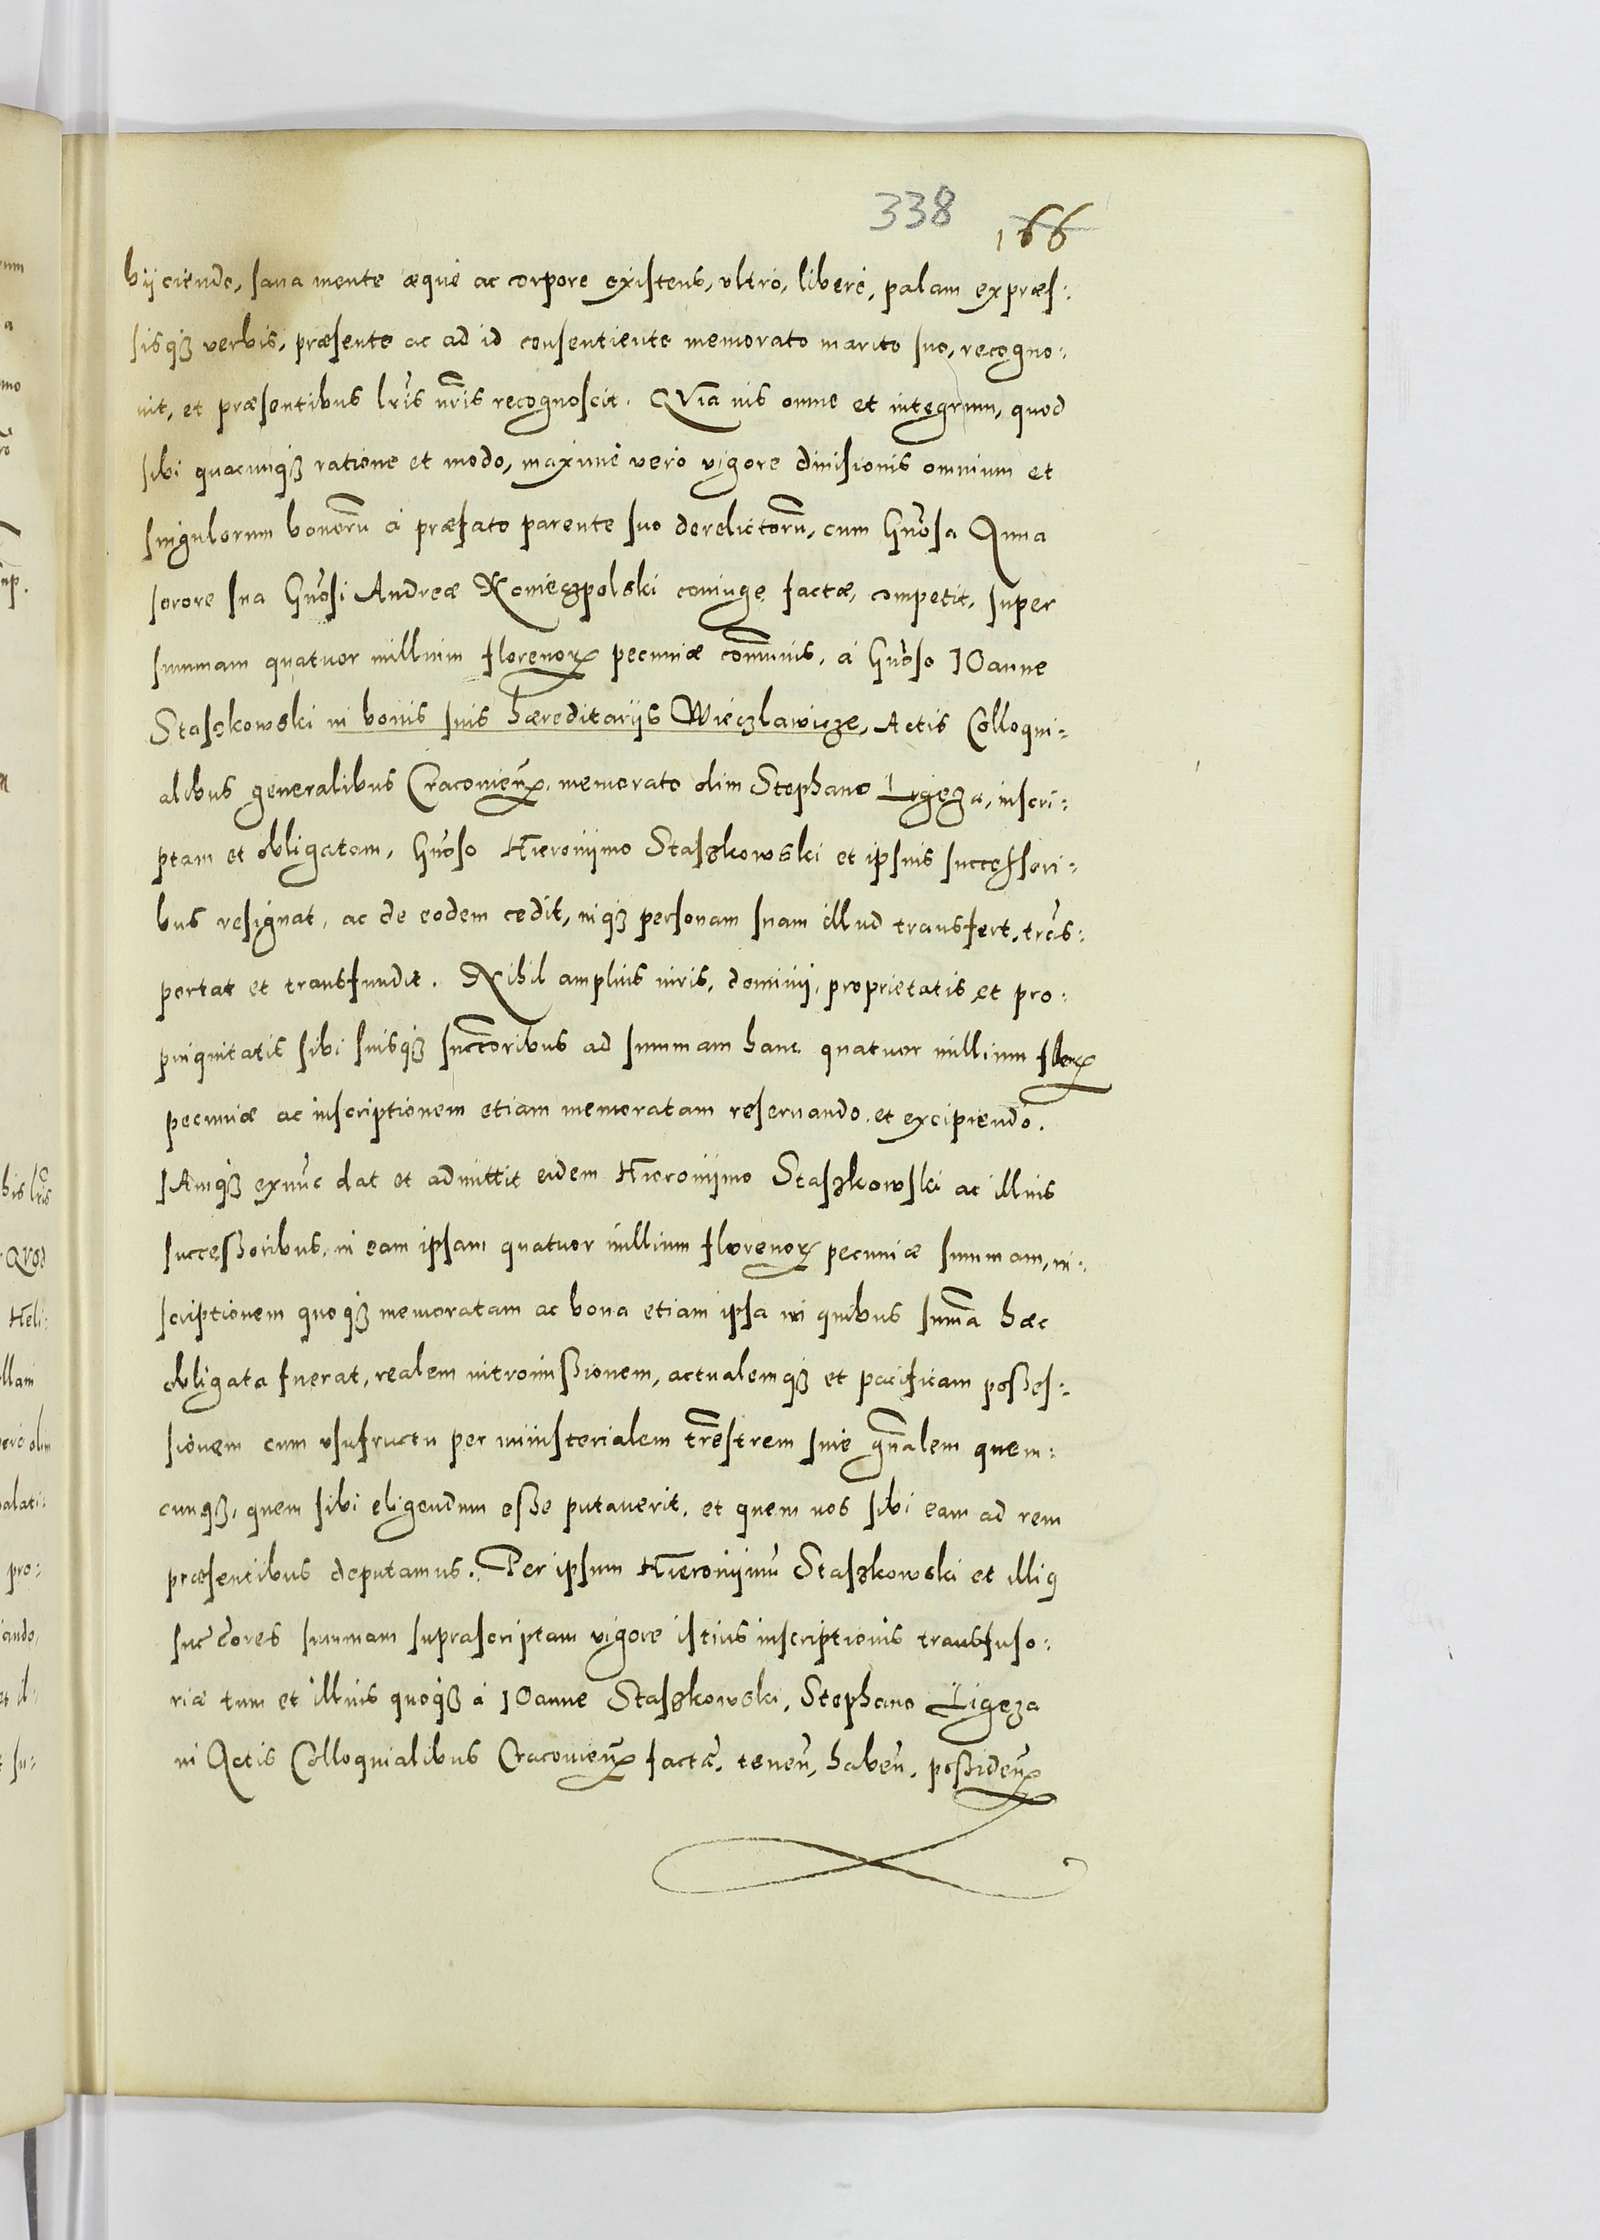 338 166
biiciendo, sana mente æque ac corpore existens, vltro, libere, palam expræs:
sisq3 verbis, præsente ac ad id consentiente memorato marito suo, recogno:
uit, et præsentibus lr̃is nr̃is recognoscit. QVia ius omne et integrum, quod
sibi quacunq3 ratione et modo, maxime vero vigore diuisionis omnium et
singulorum bonorũ à præfato parente suo derelictorũ, cum Gñosa Anna
sorore sua Gñosi Andreæ Koniecpolski coniuge factæ, competit, super
summam quatuor millium florenorꝝ pecuniæ com̃unis, à Gñoso IOanne
Staszkowski in bonis suis hæreditarijs Wieczlawicze, Actis Colloqui:
alibus generalibus Cracovieñ, memorato olim Stephano Ligęza, inscri:
ptam et obligatam, Gñoso Hieronijmo Staszkowski et ipsius successori:
bus resignat, ac de eodem cedit, inq3 personam suam illud transfert, trãs:
portat et transfundit. Nihil amplius iuris, dominij, proprietatis et pro:
pinquitatis sibi suisq3 succ̃oribus ad summam hanc quatuor millium florꝝ
pecuniæ ac inscriptionem etiam memoratam reseruando et excipiendo.
IAmq3 exnũc dat et admittit eidem Hieronijmo Staszkowski ac illius
successoribus, in eam ipsam quatuor millium florenorꝝ pecuniæ summam, in:
scriptionem quoq3 memoratam ac bona etiam ipsa in quibus sum̃a hæc
obligata fuerat, realem intromissionem, actualemq3 et pacificam posses:
sionem cum vsufructu per ministerialem tr̃estrem siue gñalem quem:
cunq3, quem sibi eligendum esse putauerit, et quem nos sibi eam ad rem
præsentibus deputamus. Per ipsum Hieronijmũ Staszkowski et illiꝰ
succ̃ores summam suprascriptam vigore istius inscriptionis transfuso:
riæ tum et illius quoq3 à IOanne Staszkowski, Stephano Ligęza
in Actis Colloquialibus Cracovieñ factæ, teneñ, habeñ, possideñ